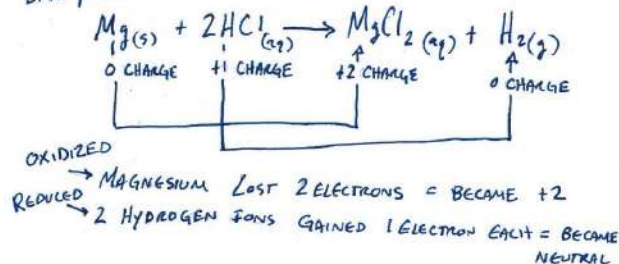 Mg(s) + 2HCl(aq) → MgCl2 (aq) + H2(g)
0 CHARGE +1 CHARGE +2 CHARGE 0 CHARGE
OXIDIZED
→ MAGNESIUM LOST 2 ELECTRONS = BECAME +2
REDUCED
→ 2 HYDROGEN IONS GAINED 1 ELECTRON EACH = BECAME
NEUTRAL